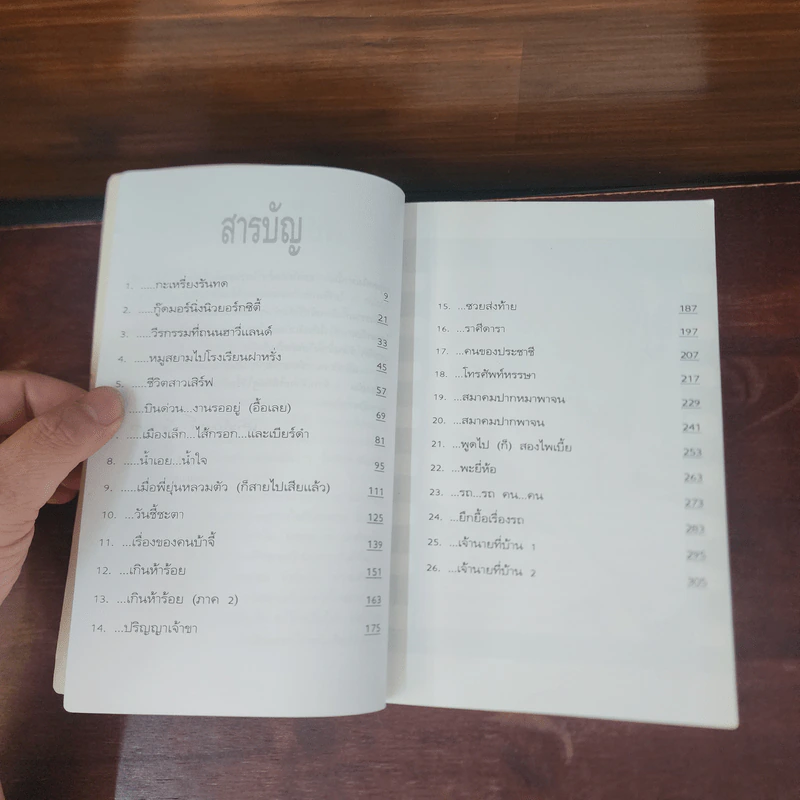 สารบัญ
1. .....กะเหรี่ยงรันทด 9
2. .....กู๊ดมอร์นิ่งนิวยอร์กซิตี้ 21
3. .....วีรกรรมที่ถนนฮาวี่แลนด์ 33
4. .....หมูสยามไปโรงเรียนฝาหรั่ง 45
5. .....ชีวิตสาวเสิร์ฟ 57
.....บินด่วน...งานรออยู่ (อื้อเลย) 69
.....เมืองเล็ก...ไส้กรอก...และเบียร์ดำ 81
8. .....น้ำเอย...น้ำใจ 95
9. .....เมื่อพี่ยุ่นหลวมตัว (ก็สายไปเสียแล้ว) 111
10. ...วันชี้ชะตา 125
11. ...เรื่องของคนบ้าจี้ 139
12. ...เกินห้าร้อย 151
13. ...เกินห้าร้อย (ภาค 2) 163
14. ...ปริญญาเจ้าขา 175
15. ...ซวยส่งท้าย 187
16. ...ราศีดารา 197
17. ...คนของประชาชี 207
18. ...โทรศัพท์หรรษา 217
19. ...สมาคมปากหมาพาจน 229
20. ...สมาคมปากพาจน 241
21. ...พูดไป (ก็) สองไพเบี้ย 253
22. ...พะยี่ห้อ 263
23. ...รถ...รถ คน...คน 273
24. ...ยึกยื้อเรื่องรถ 283
25. ...เจ้านายที่บ้าน 1 295
26. ...เจ้านายที่บ้าน 2 305